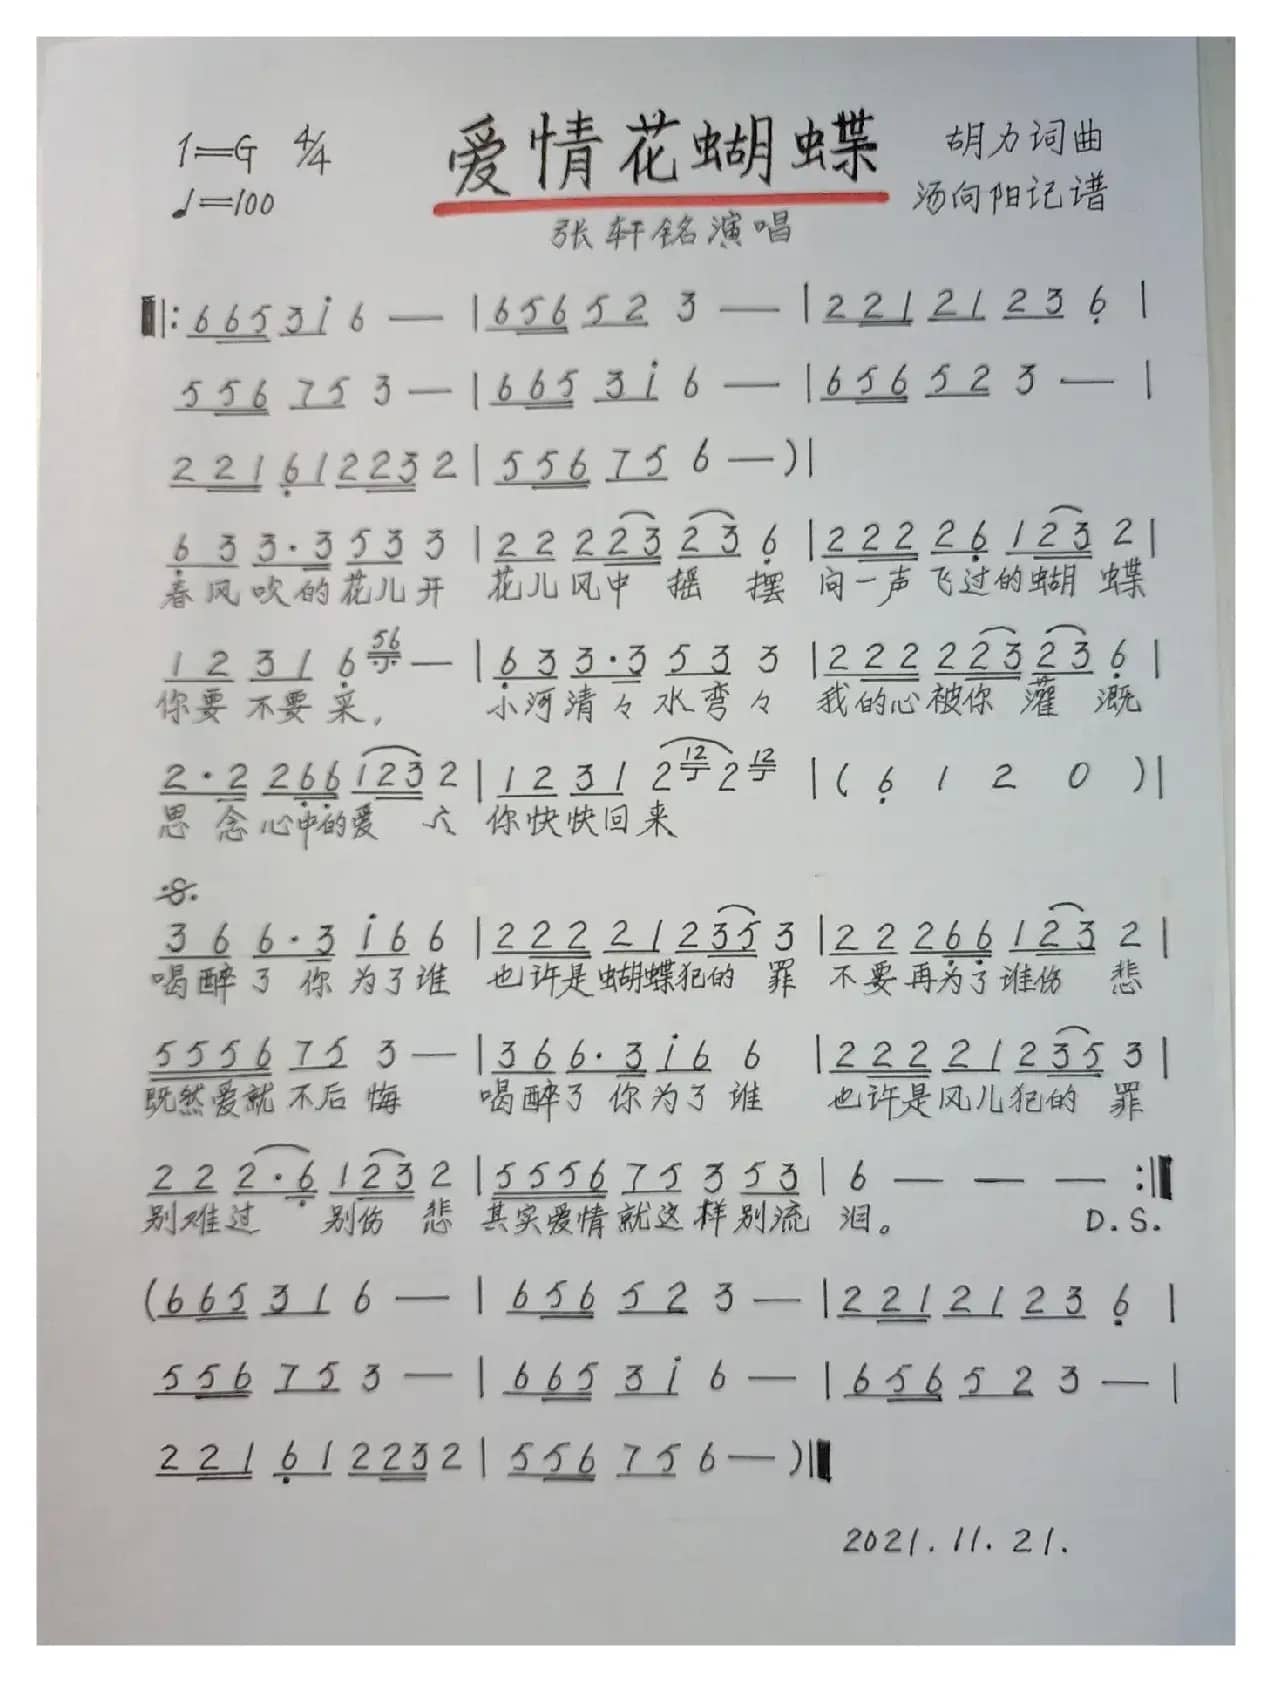 1=G 4/4 爱情花蝴蝶 胡力词曲
♩=100 汤向阳记谱
张轩铭演唱
‖: 6 6 5 3 i 6 — | 6 5 6 5 2 3 — | 2 2 1 2 1 2 3 6̣ |
5 5 6 7 5 3 — | 6 6 5 3 i 6 — | 6 5 6 5 2 3 — |
2 2 1 6̣ 1 2 2 3 2 | 5 5 6 7 5 6 — ) |
6̣ 3 3 · 3 5 3 3 | 2 2 2 2 3 2 3 6̣ | 2 2 2 2 6̣ 1 2 3 2 |
春风吹的花儿开 花儿风中 摇 摆 问一声飞过的蝴 蝶
1 2 3 1 6̣ 56 — | 6̣ 3 3 · 3 5 3 3 | 2 2 2 2 2 3 2 3 6̣ |
你要不要采, 小河清々水弯々 我的心被你 灌 溉
2 · 2 2 6̣ 6̣ 1 2 3 2 | 1 2 3 1 2 12 2 12 | ( 6̣ 1 2 0 ) |
思 念心中的爱 人 你快快回来
𝄋
3 6 6 · 3 i 6 6 | 2 2 2 2 1 2 3 5 3 | 2 2 2 6̣ 6̣ 1 2 3 2 |
喝醉了 你为了谁 也许是蝴蝶犯的 罪 不要再为了谁伤 悲
5 5 5 6 7 5 3 — | 3 6 6 · 3 i 6 6 | 2 2 2 2 1 2 3 5 3 |
既然爱就不后悔 喝醉了 你为了谁 也许是风儿犯的 罪
2 2 2 · 6̣ 1 2 3 2 | 5 5 5 6 7 5 3 5 3 | 6 — — — :‖
别难过 别伤 悲 其实爱情就这样别流 泪。 D.S.
( 6 6 5 3 1 6 — | 6 5 6 5 2 3 — | 2 2 1 2 1 2 3 6̣ |
5 5 6 7 5 3 — | 6 6 5 3 i 6 — | 6 5 6 5 2 3 — |
2 2 1 6̣ 1 2 2 3 2 | 5 5 6 7 5 6 — ) ‖
2021.11.21.